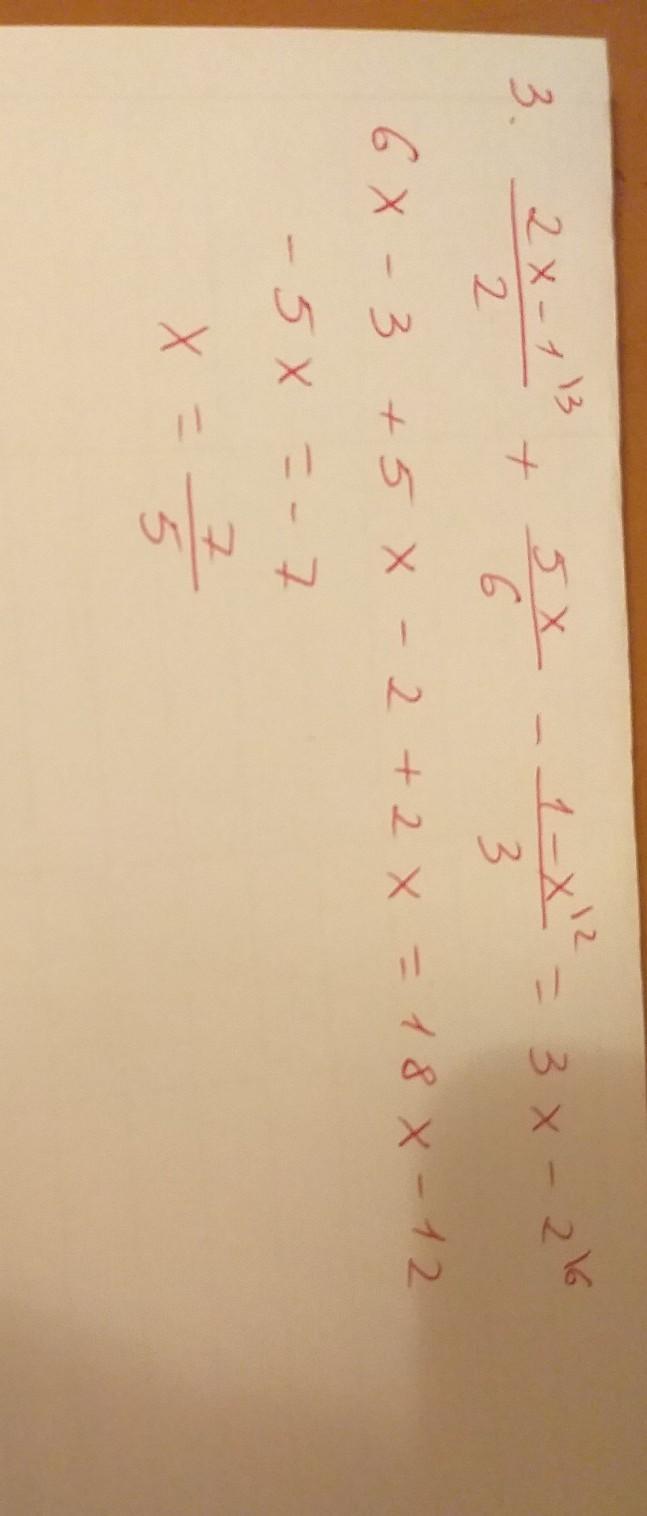 3. \frac{2x-1^{\backslash 3}}{2} + \frac{5x}{6} - \frac{1-x^{\backslash 2}}{3} = 3x-2^{\backslash 6}
6x - 3 + 5x - 2 + 2x = 18x - 12
-5x = -7
x = \frac{7}{5}